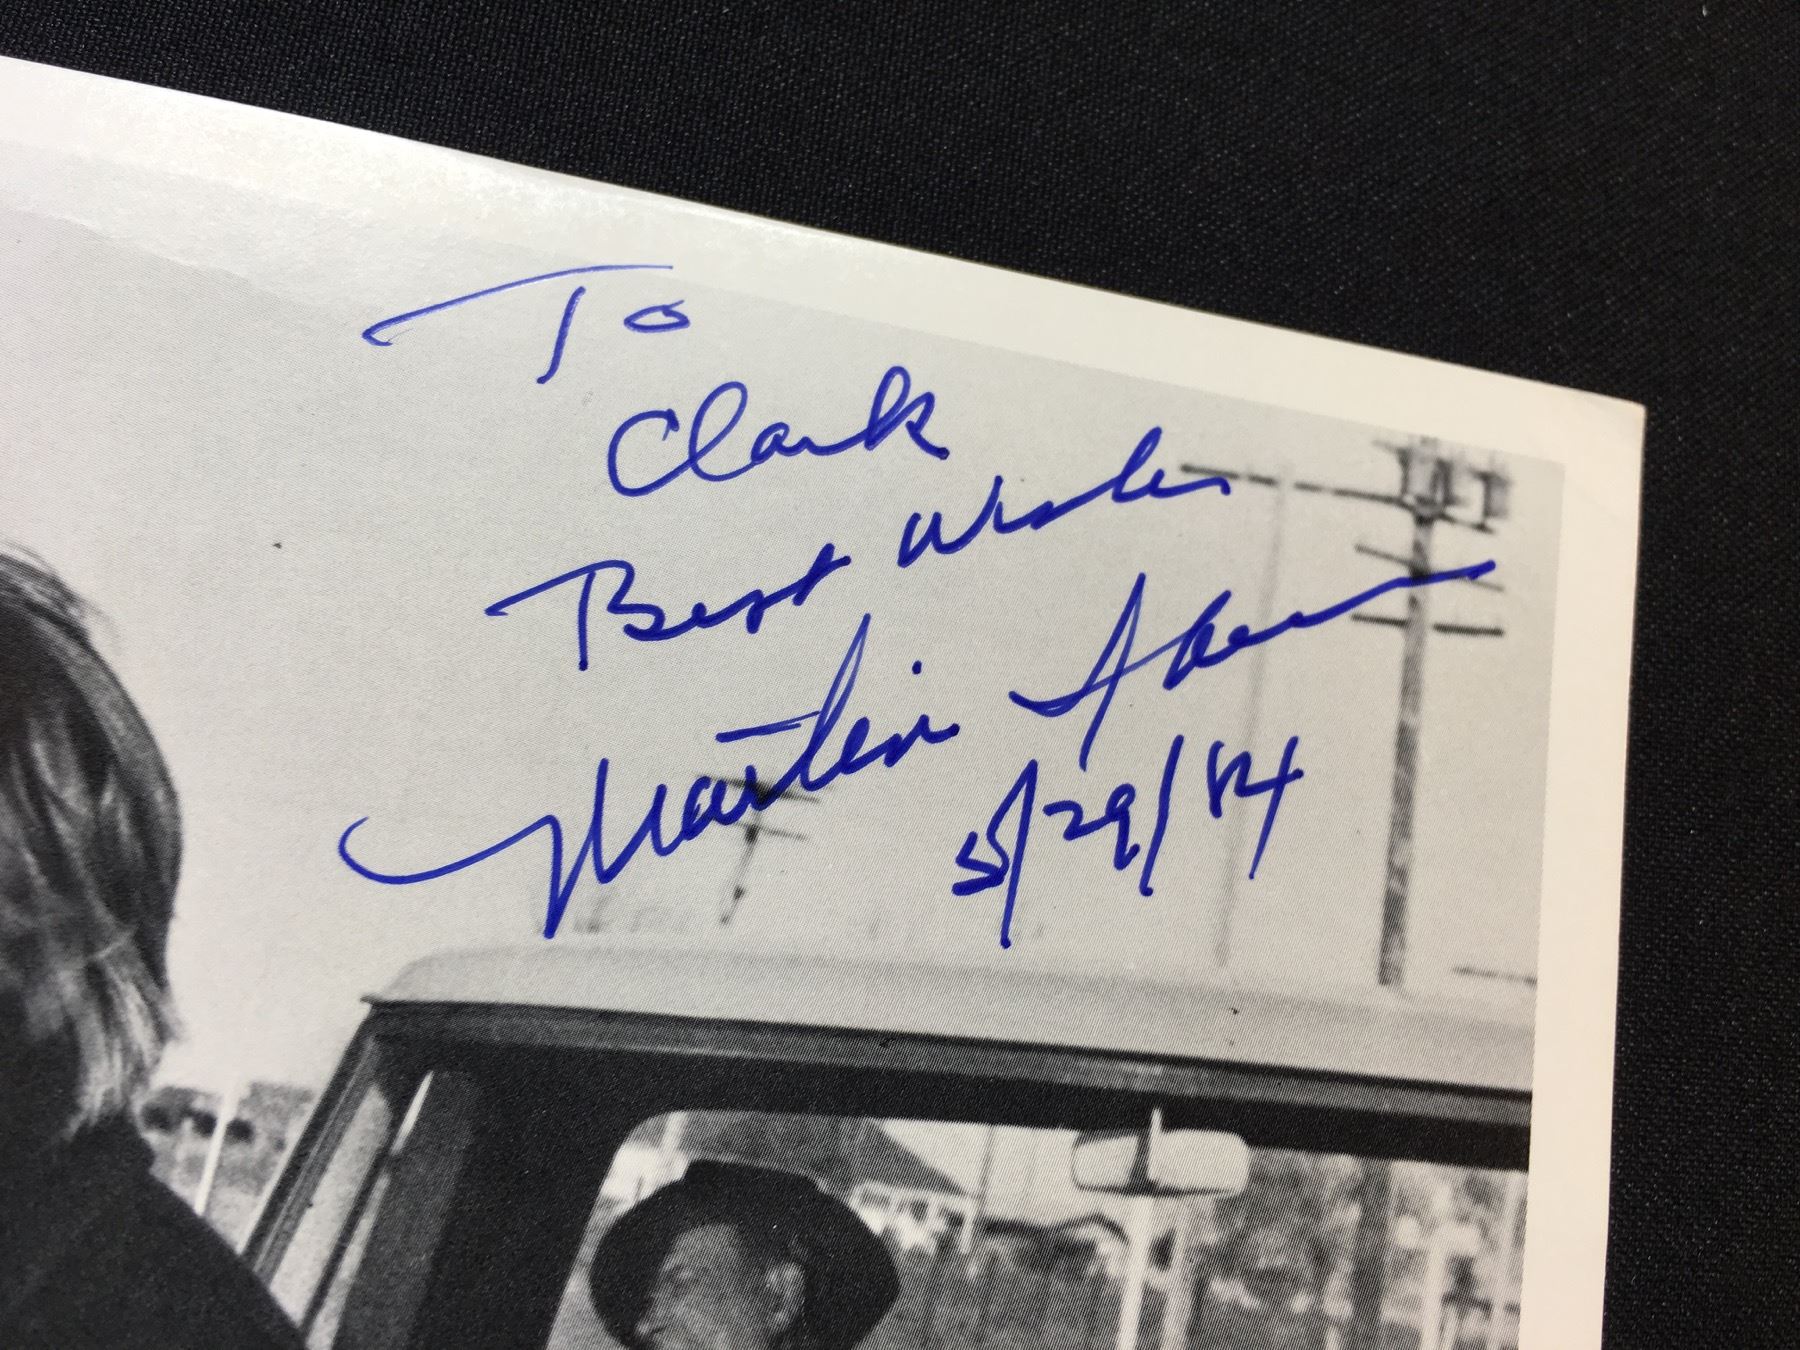 To
Clark
Best Wishes
Martin
5/29/14